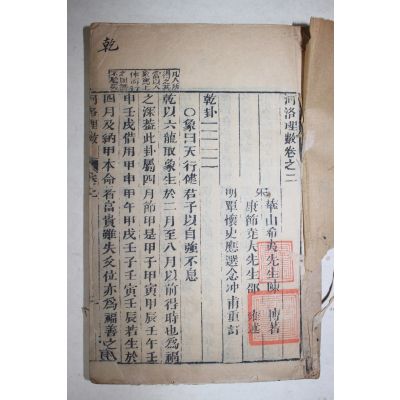 乾
河洛理數卷之二
宋
華山希夷先生陳 摶著
康節堯夫先生邵 雍述
明 單懷史應選念冲甫重訂
乾卦
○象曰天行健君子以自強不息
乾以六龍取象生於二月至八月以前得時也爲福
之深蓋此卦屬四月節甲是甲子甲寅甲辰壬午壬
申壬戌借用甲申甲午甲戌壬子壬寅壬辰若生於
四月及納甲本命者富貴雖失爻位亦爲福善之
河洛理數 卷之